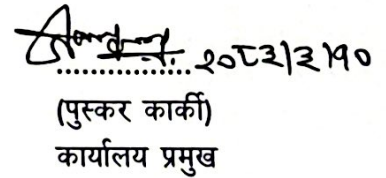 .................. २०८३|३|१०
(पुस्कर कार्की)
कार्यालय प्रमुख